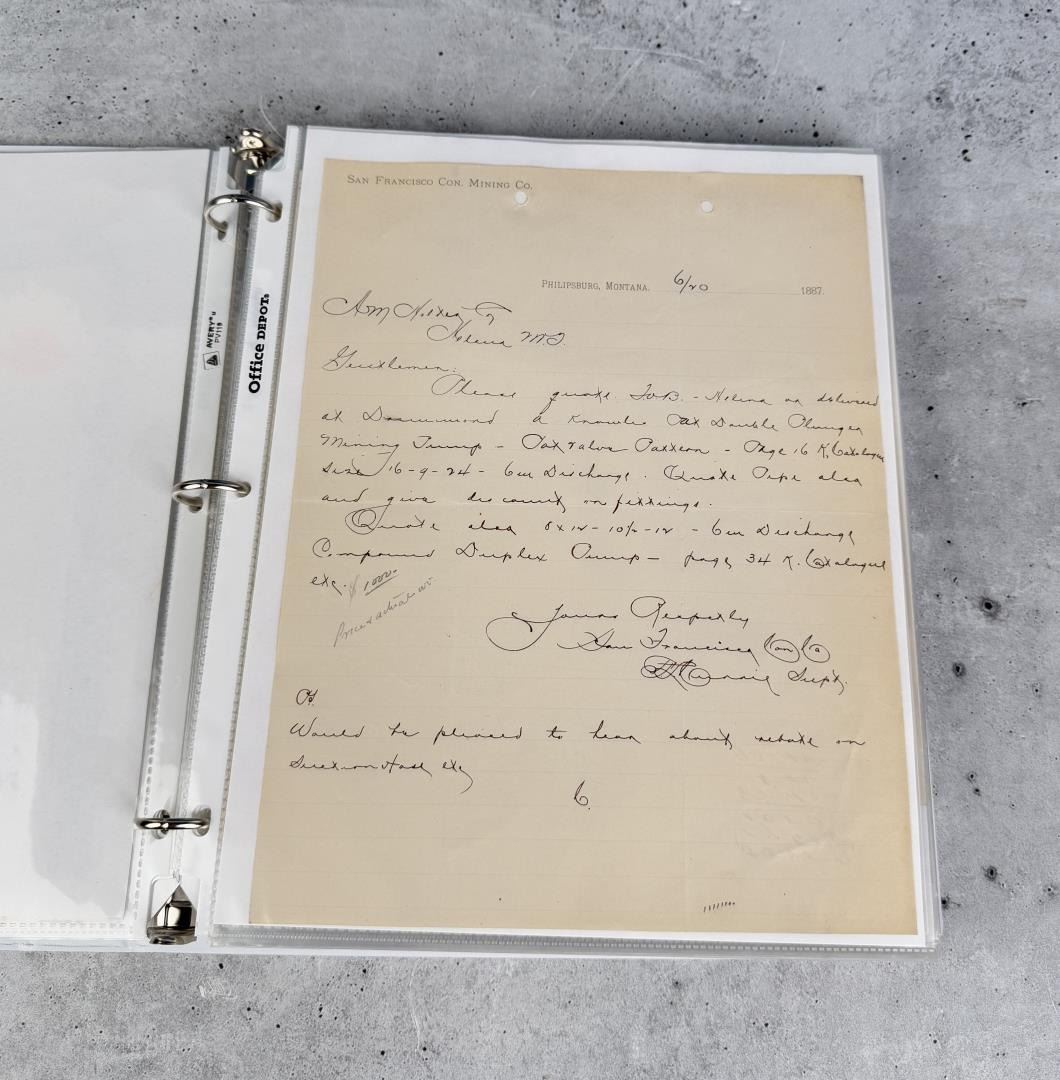 SAN FRANCISCO CON. MINING CO.
PHILIPSBURG, MONTANA. 6/20 1887.
A M Holter Co
Helena M.T.
Gentlemen:
Please quote F.O.B. - Helena or delivered
at Drummond a Knowles Double Plunger
Mining Pump - Pot Valve Pattern - Page 16 K, Catalogue
size 16-9-24 - 6in Discharge. Quote Pipe also
and give discounts on fittings.
Quote also 8x12-10½-12 - 6in Discharge
Compound Duplex Pump - page 34 K. Catalogue
etc. $1,000.-
Yours Respectfly
San Francisco Con Co
Supt.
Would be pleased to hear about rebate on
Suction Hose, etc
C.
AVERY®
PV119
Office DEPOT®